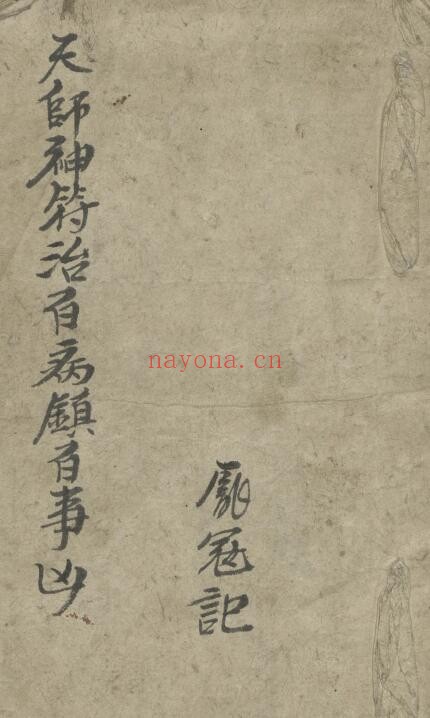 天師神符治百病鎮百事凶
冠記
nayona.cn